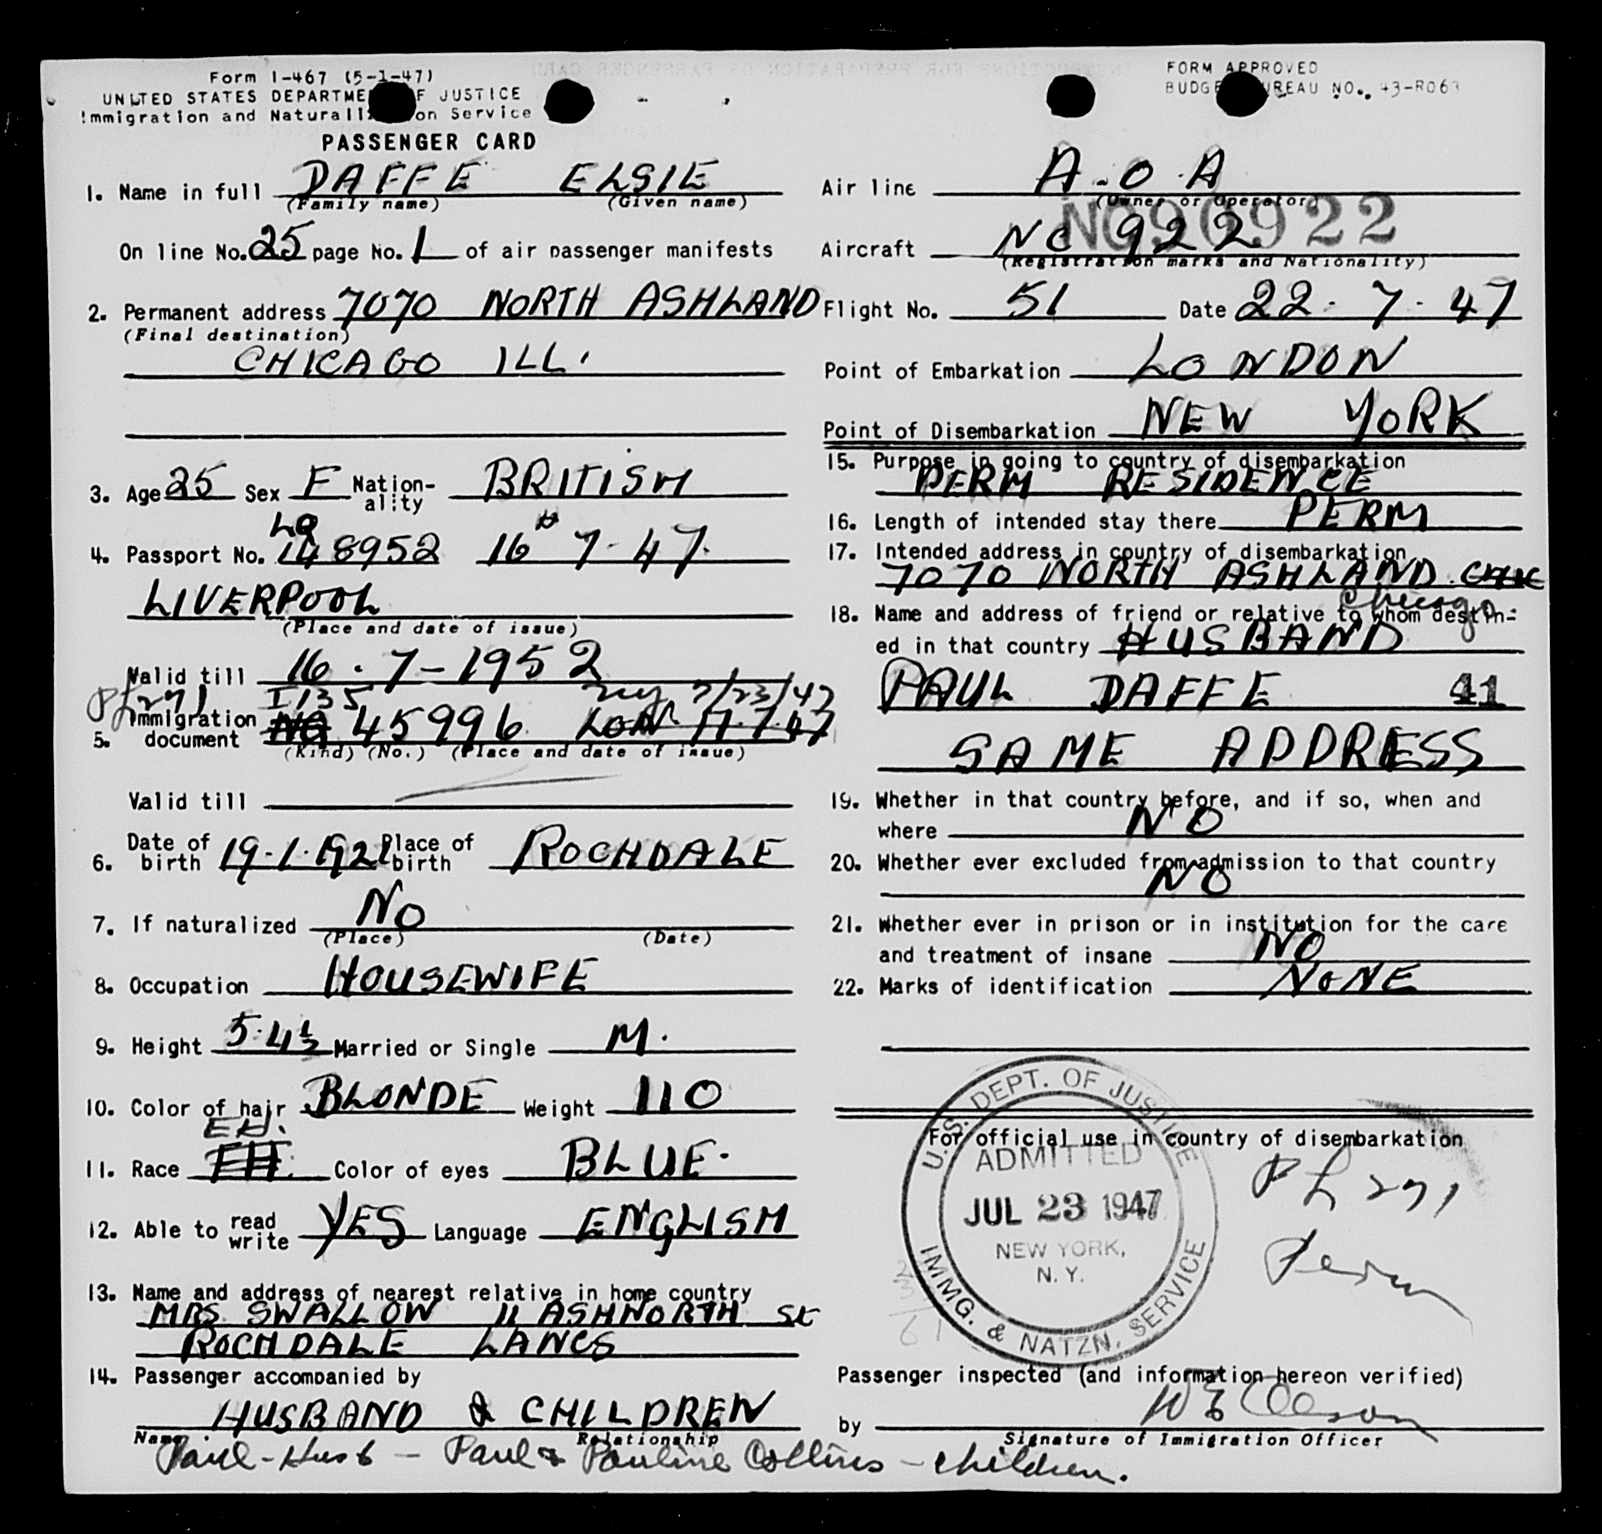 Form I-467 (5-1-47)
UNITED STATES DEPARTME OF JUSTICE
Immigration and Naturali on Service
PASSENGER CARD
1. Name in full DAFFE ELSIE
(Family name) (Given name)
On line No. 25 page No. 1 of air passenger manifests
2. Permanent address 7070 NORTH ASHLAND
(Final destination)
CHICAGO ILL.
3. Age 25 Sex F Nationality BRITISH
4. Passport No. 148952 16 7-47.
LIVERPOOL
(Place and date of issue)
Valid till 16.7-1952
I 135 7/23/47
5. Immigration document 45996
(Kind) (No.) (Place and date of issue)
Valid till
6. Date of birth 19.1.1922 Place of birth ROCHDALE
7. If naturalized NO
(Place) (Date)
8. Occupation HOUSEWIFE
9. Height 5.4½ Married or Single M.
10. Color of hair BLONDE Weight 110
11. Race Color of eyes BLUE.
12. Able to read write YES Language ENGLISH
13. Name and address of nearest relative in home country
MRS SWALLOW 11 ASHNORTH St
ROCHDALE LANCS
14. Passenger accompanied by
HUSBAND & CHILDREN
Name Relationship
Paul - Husb - Paul & Pauline Collins - children.
FORM APPROVED
BUDGE UREAU NO. 43-R063
Air line A.O.A
(Owner or Operator)
Aircraft NC 922
NC90922
(Registration marks and Nationality)
Flight No. 51 Date 22.7.47
Point of Embarkation LONDON
Point of Disembarkation NEW YORK
15. Purpose in going to country of disembarkation
PERM RESIDENCE
16. Length of intended stay there PERM
17. Intended address in country of disembarkation
7070 NORTH ASHLAND
Chicago
18. Name and address of friend or relative to whom destin-
ed in that country HUSBAND
PAUL DAFFE 41
SAME ADDRESS
19. Whether in that country before, and if so, when and
where NO
20. Whether ever excluded from admission to that country
NO
21. Whether ever in prison or in institution for the care
and treatment of insane NO
22. Marks of identification NONE
For official use in country of disembarkation
U.S. DEPT. OF JUSTICE
ADMITTED
JUL 23 1947
NEW YORK,
N. Y.
IMMG. & NATZN. SERVICE
PL 271
Passenger inspected (and information hereon verified)
by
Signature of Immigration Officer